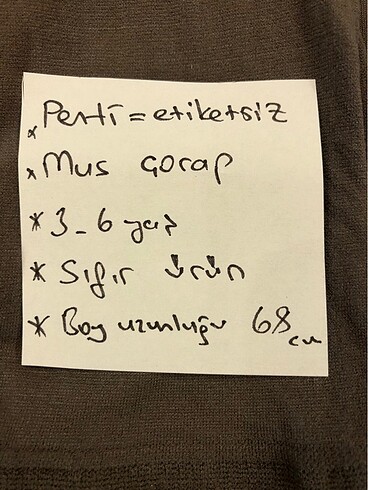 * Penti = etiketsiz
* Mus çorap
* 3-6 yaş
* Sıfır ürün
* Boy uzunluğu 68 cm